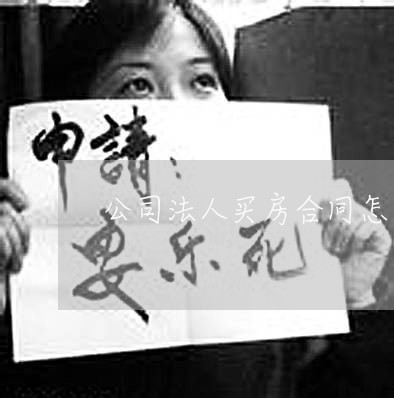 申請：
公司法人买房合同怎
要乐死